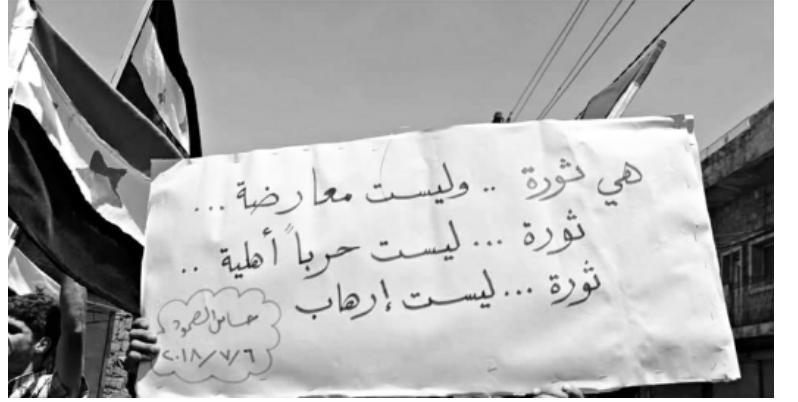 هي ثورة .. وليست معارضة ...
ثورة ... ليست حرباً أهلية ..
ثورة ... ليست إرهاب
الصمود
٢٠١٨/٧/٦